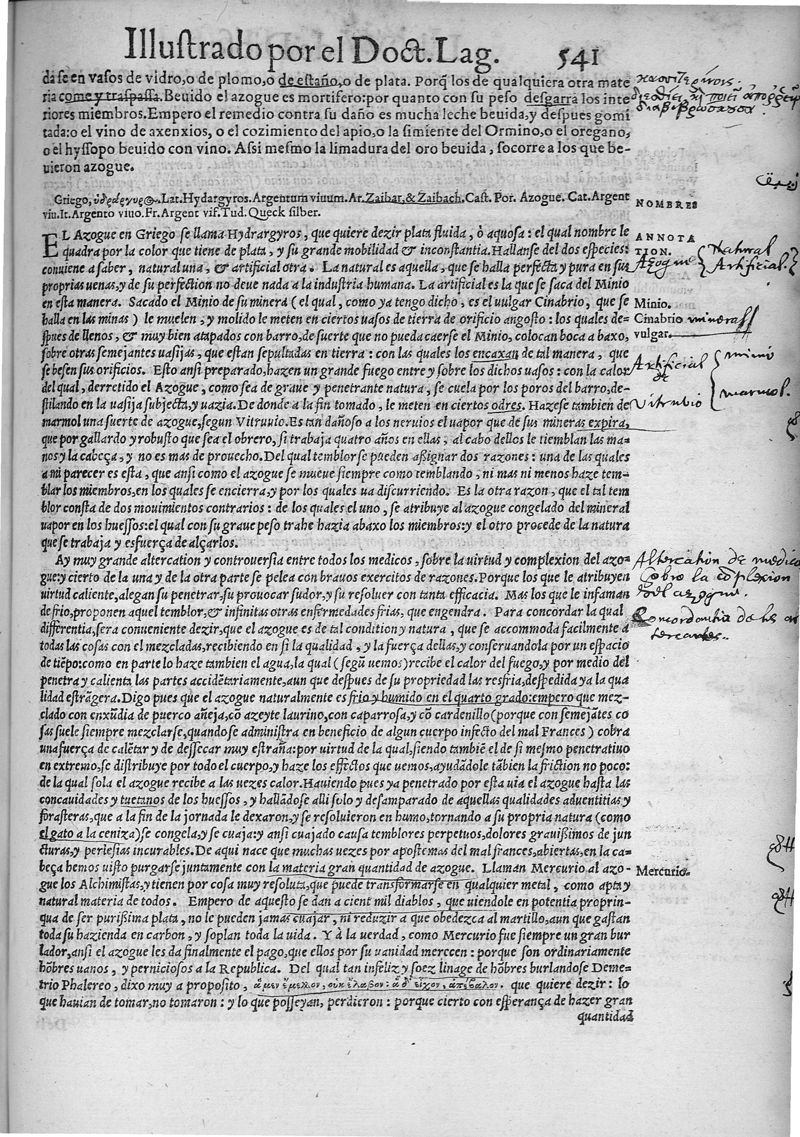 Illustrado por el Doct. Lag. 541
da se en vasos de vidro, o de plomo, o de estaño, o de plata. Porq̃ los de qualquiera otra mate
ria come y traspassa. Beuido el azogue es mortifero: por quanto con su peso desgarra los inte
riores miembros. Empero el remedio contra su daño es mucha leche beuida, y despues gomi
tada: o el vino de axenxios, o el cozimiento del apio, o la simiente del Ormino, o el oregano,
o el hyssopo beuido con vino. Assi mesmo la limadura del oro beuida, socorre a los que be-
uieron azogue.
Griego, ὑδράργυρος. Lat. Hydargyros. Argentum viuum. Ar. Zaibar, & Zaibach. Cast. Por. Azogue. Cat. Argent
viu. It. Argento viuo. Fr. Argent vif. Tud. Queck silber.
NOMBRES
EL Azogue en Griego se llama Hydrargyros, que quiere dezir plata fluida, ò aquosa: el qual nombre le
quadra por la color que tiene de plata, y su grande mobilidad & inconstantia. Hallanse del dos especies:
conuiene a saber, natural una, & artificial otra. La natural es aquella, que se halla perfecta y pura en sus
proprias uenas, y de su perfection no deue nada a la industria humana. La artificial es la que se saca del Minio
en esta manera. Sacado el Minio de su minera (el qual, como ya tengo dicho, es el uulgar Cinabrio, que se
halla en las minas) le muelen, y molido le meten en ciertos uasos de tierra de orificio angosto: los quales de-
spues de llenos, & muy bien atapados con barro, de suerte que no pueda caerse el Minio, colocan boca a baxo,
sobre otras semejantes uasijas, que estan sepultadas en tierra: con las quales los encaxan de tal manera, que
se besen sus orificios. Esto ansi preparado, hazen un grande fuego entre y sobre los dichos uasos: con la calor
del qual, derretido el Azogue, como sea de graue y penetrante natura, se cuela por los poros del barro, de-
stilando en la uasija subjecta, y uazia. De donde a la fin tomado, le meten en ciertos odres. Hazese tambien de
marmol una suerte de azogue, segun Vitruuio. Es tan dañoso a los neruios el uapor que de sus mineras expira,
que por gallardo y robusto que sea el obrero, si trabaja quatro años en ellas, al cabo dellos le tiemblan las ma-
nos y la cabeça, y no es mas de prouecho. Del qual temblor se pueden assignar dos razones: una de las quales
a mi parecer es esta, que ansi como el azogue se mueue siempre como temblando, ni mas ni menos haze tem-
blar los miembros, en los quales se encierra, y por los quales ua discurriendo. Es la otra razon, que el tal tem
blor consta de dos mouimientos contrarios: de los quales el uno, se atribuye al azogue congelado del mineral
uapor en los huessos: el qual con su graue peso trahe hazia abaxo los miembros: y el otro procede de la natura
que se trabaja y esfuerça de alçarlos.
ANNOTA
TION.
Azogue
Natural
Artificial.
Minio.
Cinabrio mineral
vulgar.
Artificial
minio
Vitrubio
marmol.
Ay muy grande altercation y controuersia entre todos los medicos, sobre la uirtud y complexion del azo-
gue: y cierto de la una y de la otra parte se pelea con brauos exercitos de razones. Porque los que le atribuyen
uirtud caliente, alegan su penetrar, su prouocar sudor, y su resoluer con tanta efficacia. Mas los que le infaman
de frio, proponen aquel temblor, & infinitas otras enfermedades frias, que engendra. Para concordar la qual
differentia, sera conueniente dezir, que el azogue es de tal condition y natura, que se accommoda facilmente a
todas las cosas con el mezcladas, recibiendo en si la qualidad, y la fuerça dellas, y conseruandola por un espacio
de tiẽpo: como en parte lo haze tambien el agua, la qual (segũ uemos) recibe el calor del fuego, y por medio del
penetra y calienta las partes accidẽtariamente, aun que despues de su propriedad las resfria, despedida ya la qua
lidad estrãgera. Digo pues que el azogue naturalmente es frio y humido en el quarto grado: empero que mez-
clado con enxũdia de puerco añeja, cõ azeyte laurino, con caparrosa, y cõ cardenillo (porque con semejãtes co
sas suele siempre mezclarse, quando se administra en beneficio de algun cuerpo infecto del mal Frances) cobra
una fuerça de calẽtar y de dessecar muy estraña: por uirtud de la qual, siendo tambiẽ el de si mesmo penetratiuo
en extremo, se distribuye por todo el cuerpo, y haze los effectos que uemos, ayudãdole tãbien la friction no poco:
de la qual sola el azogue recibe a las uezes calor. Hauiendo pues ya penetrado por esta uia el azogue hasta las
concauidades y tuetanos de los huessos, y hallãdose alli solo y desamparado de aquellas qualidades aduentitias y
forasteras, que a la fin de la jornada le dexaron, y se resoluieron en humo, tornando a su propria natura (como
el gato a la ceniza) se congela, y se cuaja: y ansi cuajado causa temblores perpetuos, dolores grauissimos de jun
cturas, y perlesias incurables. De aqui nace que muchas uezes por apostemas del mal frances, abiertas, en la ca-
beça hemos uisto purgarse juntamente con la materia gran quantidad de azogue. Llaman Mercurio al azo-
gue los Alchimistas, y tienen por cosa muy resoluta, que puede transformarse en qualquier metal, como apta y
natural materia de todos. Empero de aquesto se dan a cient mil diablos, que uiendole en potentia proprin-
qua de ser purissima plata, no le pueden jamas cuajar, ni reduzir a que obedezca al martillo, aun que gastan
toda su hazienda en carbon, y soplan toda la uida. Y à la uerdad, como Mercurio fue siempre un gran bur
lador, ansi el azogue les da finalmente el pago, que ellos por su uanidad merecen: porque son ordinariamente
hõbres uanos, y perniciosos a la Republica. Del qual tan infeliz y soez linage de hõbres burlandose Deme-
trio Phalereo, dixo muy a proposito, ἃ μεν ἔμελλον, ουκ ελαβον: ἃ δ' εἶχον, ἀπέβαλον. que quiere dezir: lo
que hauian de tomar, no tomaron: y lo que posseyan, perdieron: porque cierto con esperança de hazer gran
quantidad
Altercation de medicos
sobre la complexion
del azogue.
Concordantia de los al
tercantes.
Mercurio.